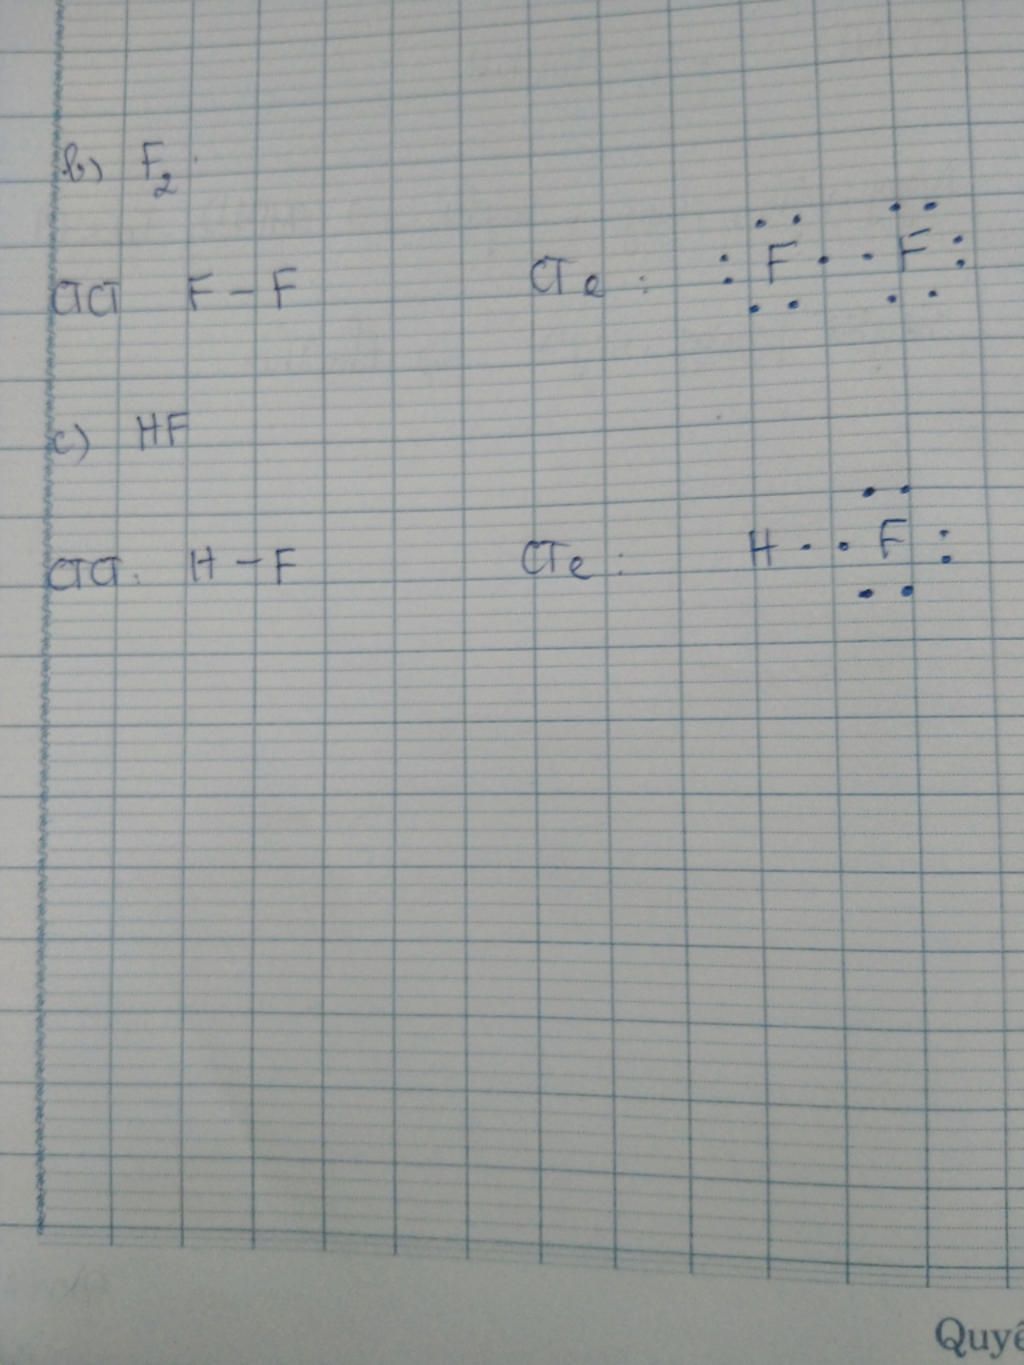 b) F2
CTCT F – F CTe : : F · · F :
c) HF
CTCT: H – F CTe : H · · F :
Quyê